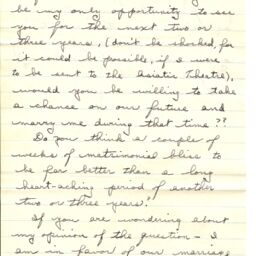 be my only opportunity to see
you for the next two or
three years, (don't be shocked, for
it could be possible, if I were
to be sent to the Asiatic Theatre),
would you be willing to take
a chance on our future and
marry me during that time??
Do you think a couple of
weeks of matrimonial bliss to
be far better than a long
heart-aching period of another
two or three years?
If you are wondering about
my opinion of the question - I
am in favor of our marriage